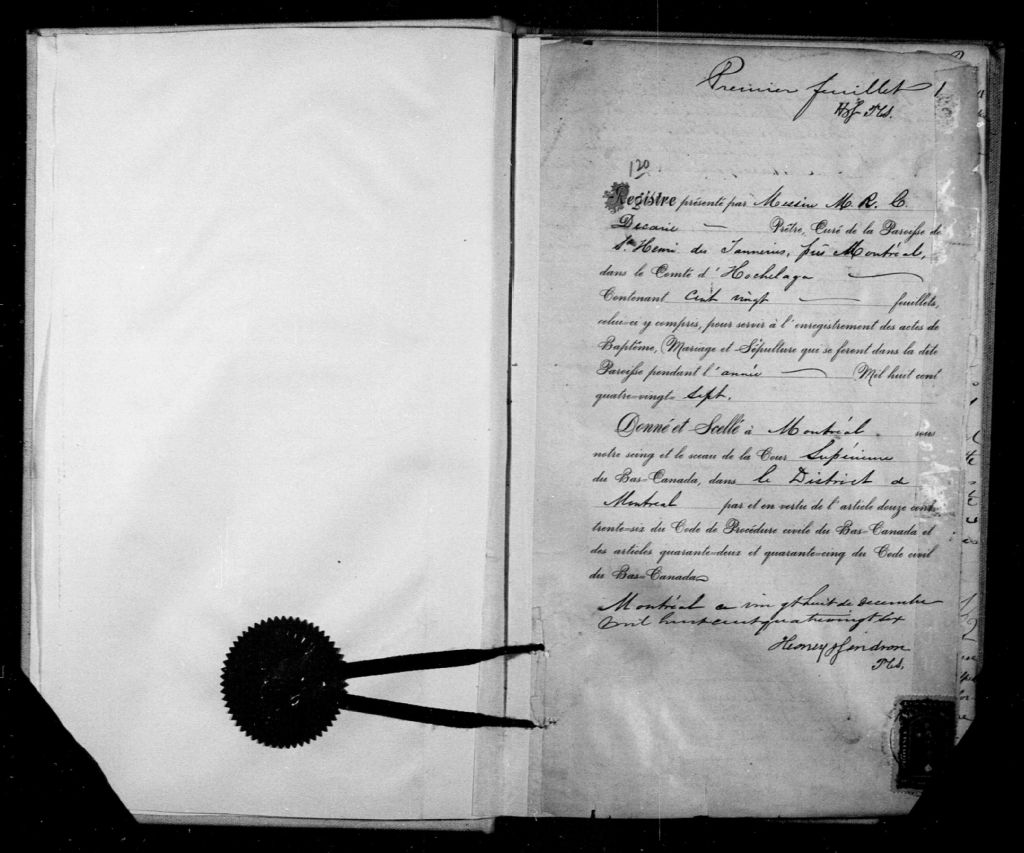 Premier feuillet 1
120
Registre présenté par Messire M R. C.
Decarie Prêtre, Curé de la Paroisse de
St Henri des Tanneries, près Montréal,
dans le Comté d'Hochelaga
Contenant cent vingt feuillets,
celui-ci y compris, pour servir à l'enregistrement des actes de
Baptême, Mariage et Sépulture qui se feront dans la dite
Paroisse pendant l'année Mil huit cent
quatre-vingt-sept.
Donné et Scellé à Montréal sous
notre seing et le sceau de la Cour Supérieure
du Bas-Canada, dans le District de
Montréal par et en vertu de l'article douze cent
trente-six du Code de Procédure civile du Bas-Canada et
des articles quarante-deux et quarante-cinq du Code civil
du Bas-Canada
Montréal ce vingt huit de decembre
mil huit cent quatre vingt six